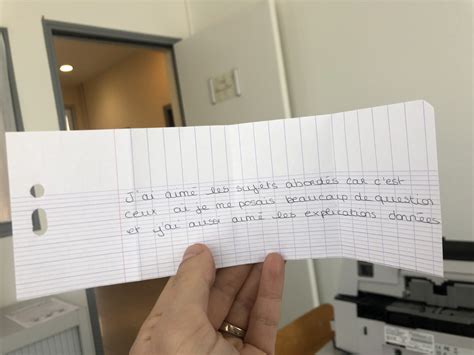 J'ai aimé les sujets abordés car c'est
ceux ou je me posais beaucoup de question
et j'ai aussi aimé les explications données